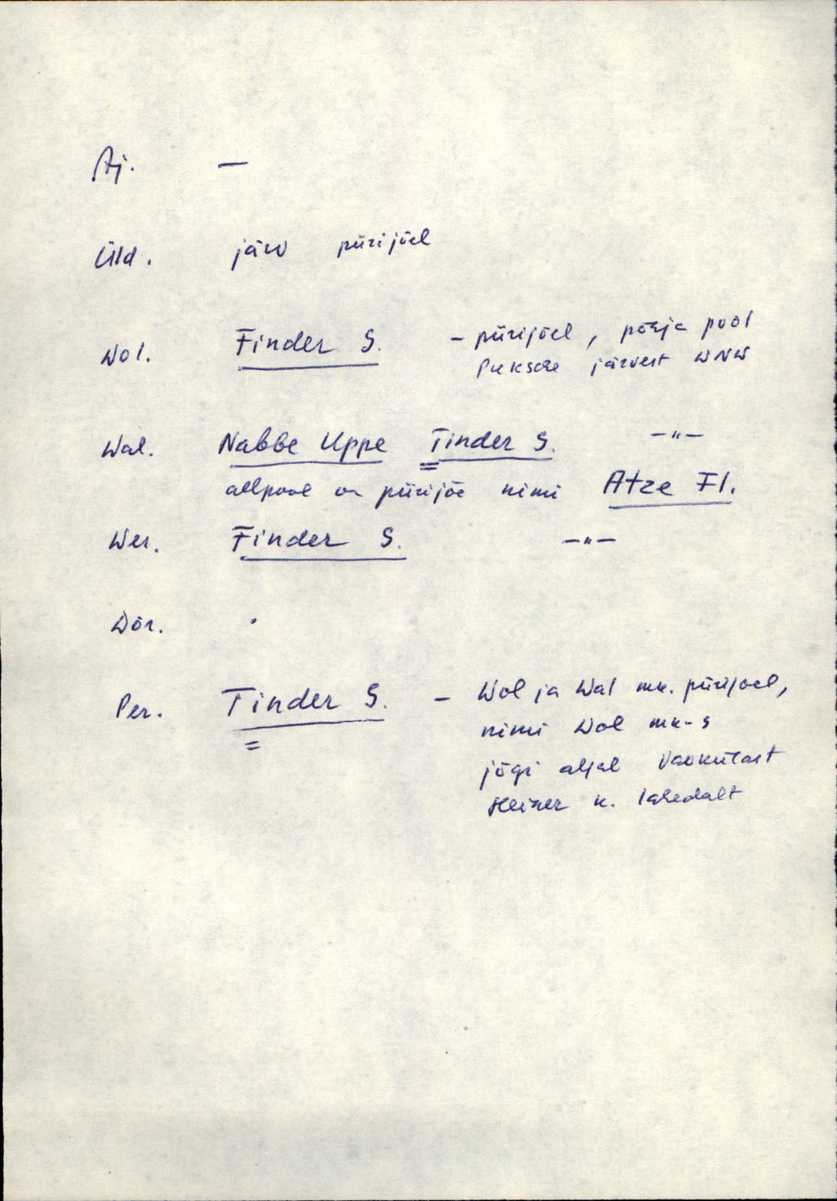 Aj. —
Üld. järv piirijõel
Wol. Finder S. - piirijõel, põhja pool
järvest WNW
Wal. Nabbe Uppe Tinder S. —"—
allpool on piirijõe nimi Atze Fl.
Wer. Finder S. —"—
Dör. .
Per. Tinder S. — Wol ja Wal mk. piirijoel,
nimi Wol mk-s
jõgi algab
k. lahedalt